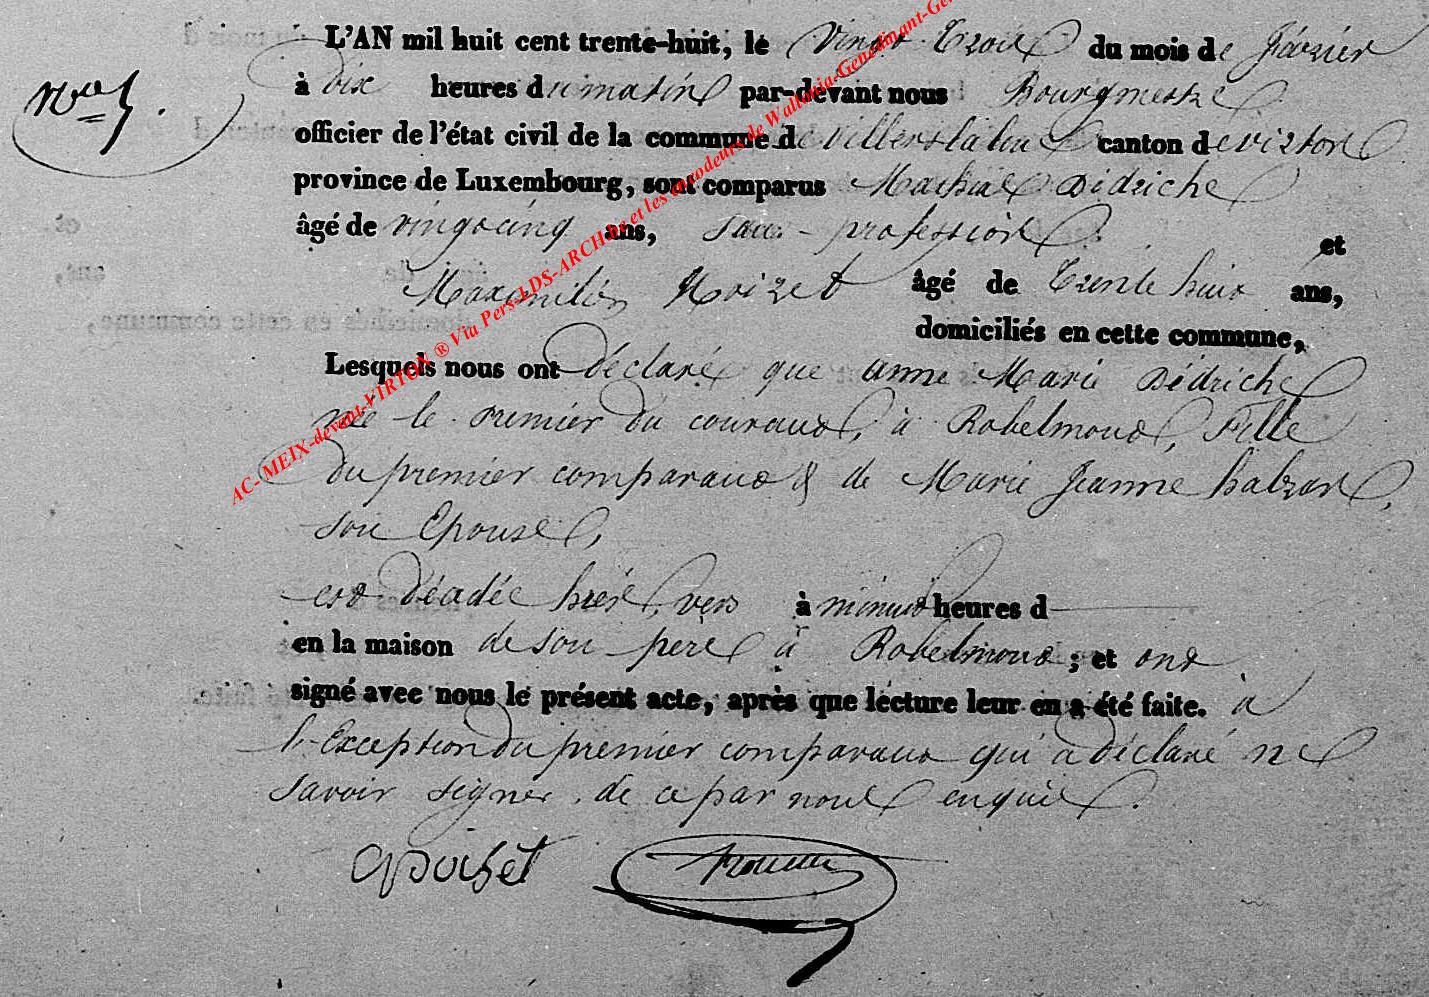 L'AN mil huit cent trente-huit, le Vingt Trois du mois de février
N° 5.
à dix heures du matin par-devant nous Bourgmestre
officier de l'état civil de la commune de villers la loue canton de virton
province de Luxembourg, sont comparus Martial Didriche
âgé de vingt cinq ans, sans profession et
Maximilien Noizet âgé de Trente huit ans,
domiciliés en cette commune,
Lesquels nous ont déclaré que anne Marie Dédriche
née le premier du courant, à Robelmont, Fille
du premier comparant & de Marie Jeanne
son Epouse,
est décédée hier, vers à minuit heures d
en la maison de son père à Robelmont ; et ont
signé avec nous le présent acte, après que lecture leur en a été faite. à
l'Exception du premier comparant qui a déclaré ne
savoir signer, de ce par nous enquis.
AC- MEIX-devant-VIRTON ® Via Pers-LDS-ARCH et les encodeurs de Wallonia-Genedinant-Gen